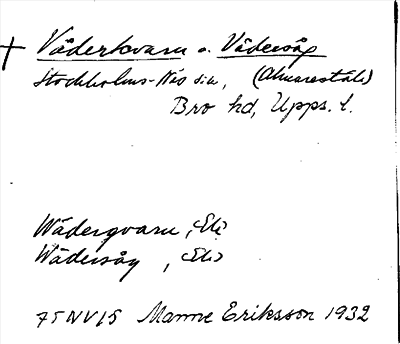 † Väderkvarn o. Vädersåg
Stockholms-Näs sn, (Almarestäk)
Bro hd, Upps. l.
Wäderqvarn, Ek
Wädersåg, Ek
75NV15 Manne Eriksson 1932